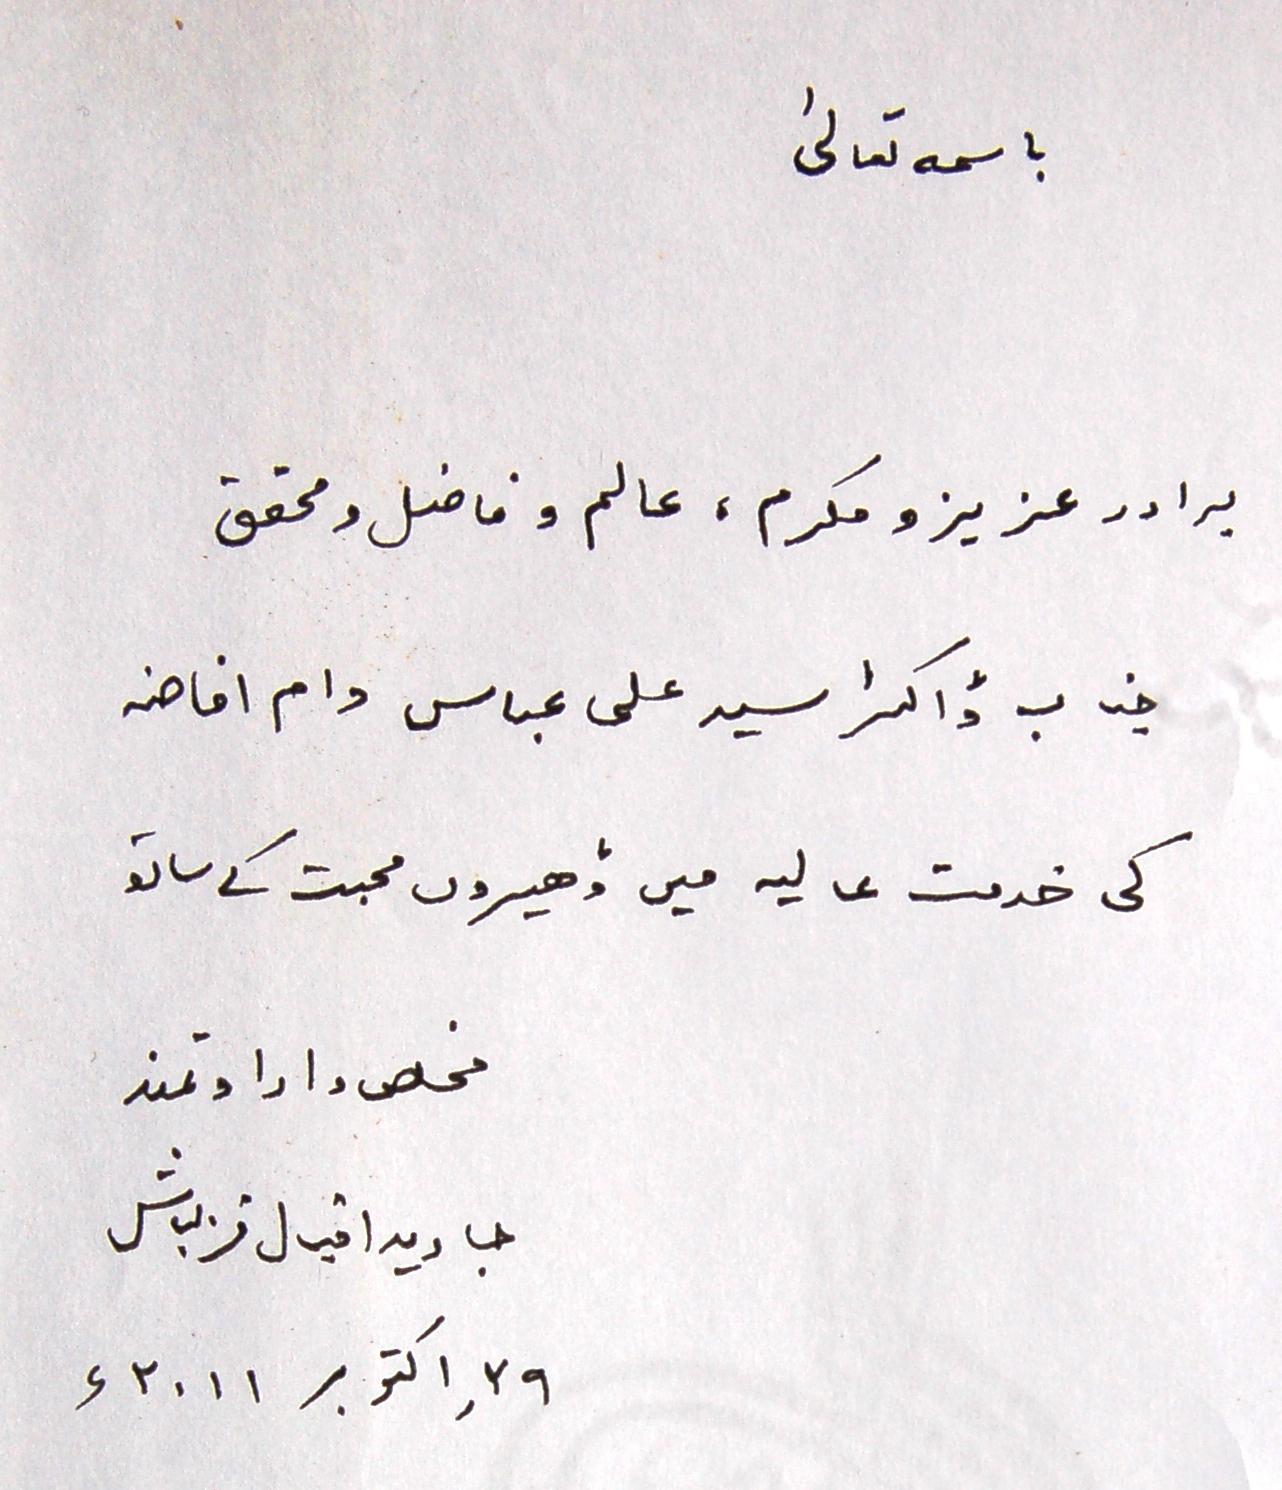 باسمہ تعالیٰ
برادر عزیز و مکرم، عالم و فاضل و محقق
جناب ڈاکٹر سید علی عباس دام افاضہ
کی خدمت عالیہ میں ڈھیروں محبت کے ساتھ
مخلص و ارادتمند
جاوید اقبال قزلباش
۲۹؍ اکتوبر ۲۰۱۱ء